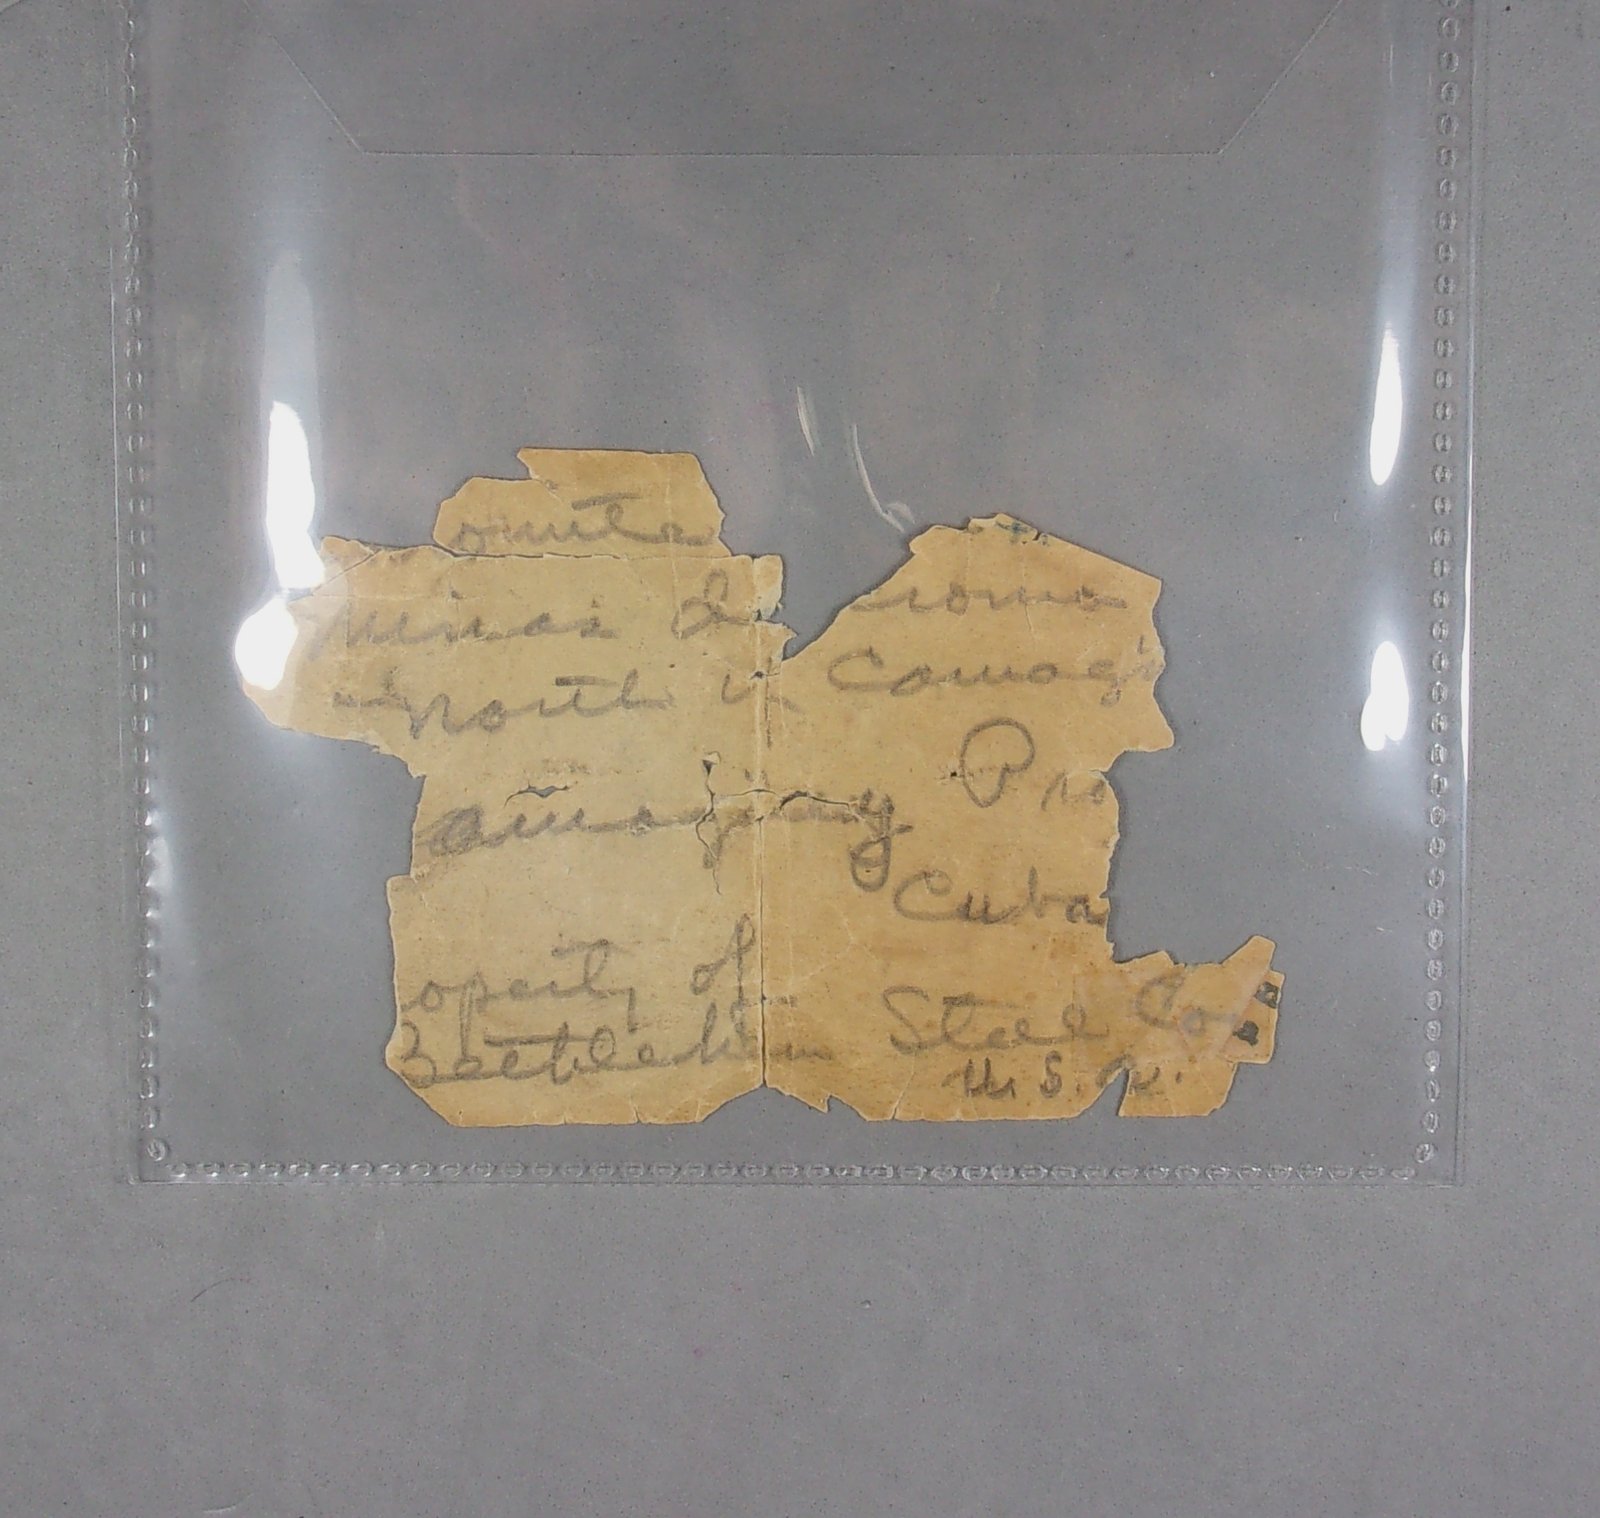 omita
Minas de romo
North of Camag
amaguay Pro
Cuba
operty of
Bethlehem Steel Co
U. S. A.